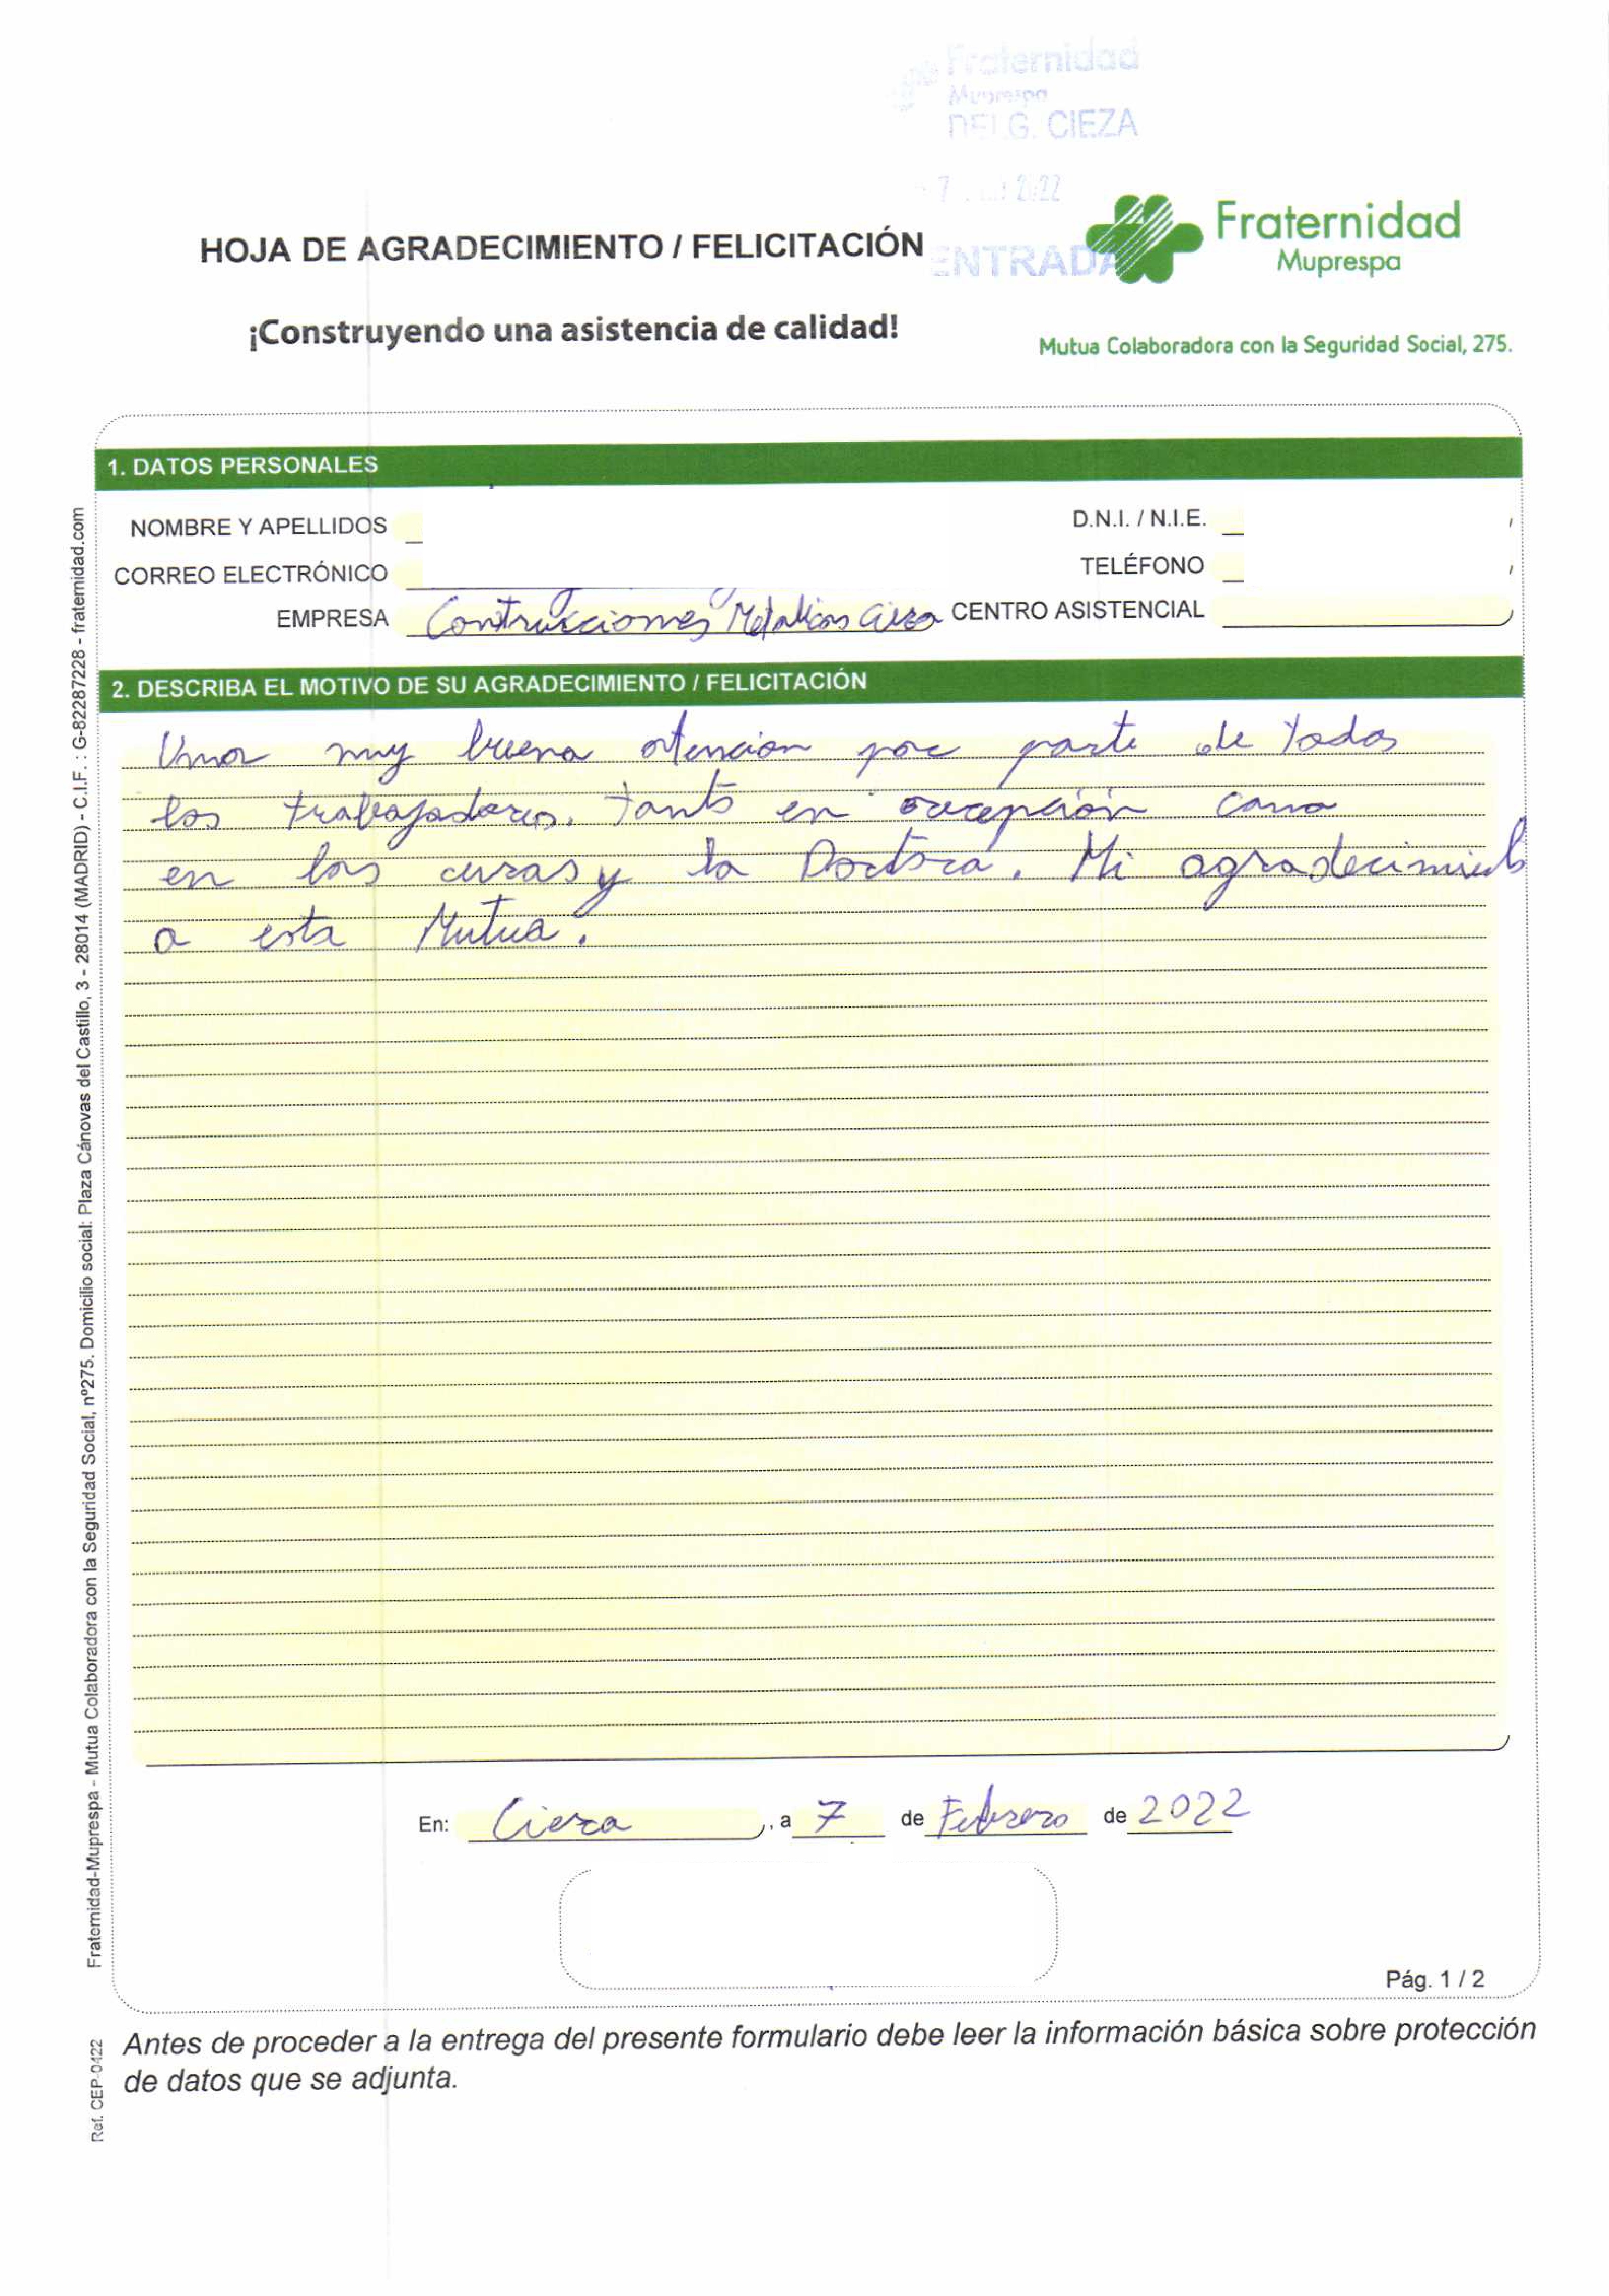 Fraternidad
Muprespa
DELG. CIEZA
7 2022
ENTRADA
HOJA DE AGRADECIMIENTO / FELICITACIÓN
¡Construyendo una asistencia de calidad!
Fraternidad
Muprespa
Mutua Colaboradora con la Seguridad Social, 275.
1. DATOS PERSONALES
NOMBRE Y APELLIDOS D.N.I. / N.I.E.
CORREO ELECTRÓNICO TELÉFONO
EMPRESA Contrucciones Metalicas Cieza CENTRO ASISTENCIAL
2. DESCRIBA EL MOTIVO DE SU AGRADECIMIENTO / FELICITACIÓN
Una muy buena atencion por parte de todos
los trabajadores. tanto en recepción como
en las curas y la Doctora. Mi agradecimiento
a esta Mutua.
En: Cieza , a 7 de Febrero de 2022
Pág. 1 / 2
Antes de proceder a la entrega del presente formulario debe leer la información básica sobre protección
de datos que se adjunta.
Fraternidad-Muprespa - Mutua Colaboradora con la Seguridad Social, nº275. Domicilio social: Plaza Cánovas del Castillo, 3 - 28014 (MADRID) - C.I.F. : G-82287228 - fraternidad.com
Ref. CEP-0422